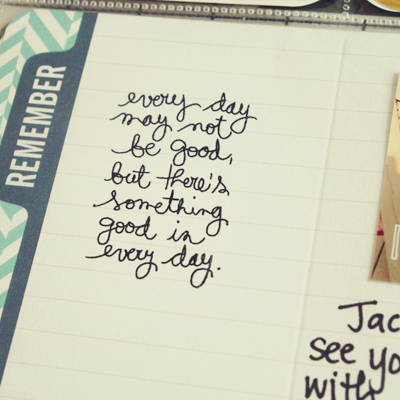 REMEMBER
every day
may not
be good,
but there's
something
good in
every day.
see
with